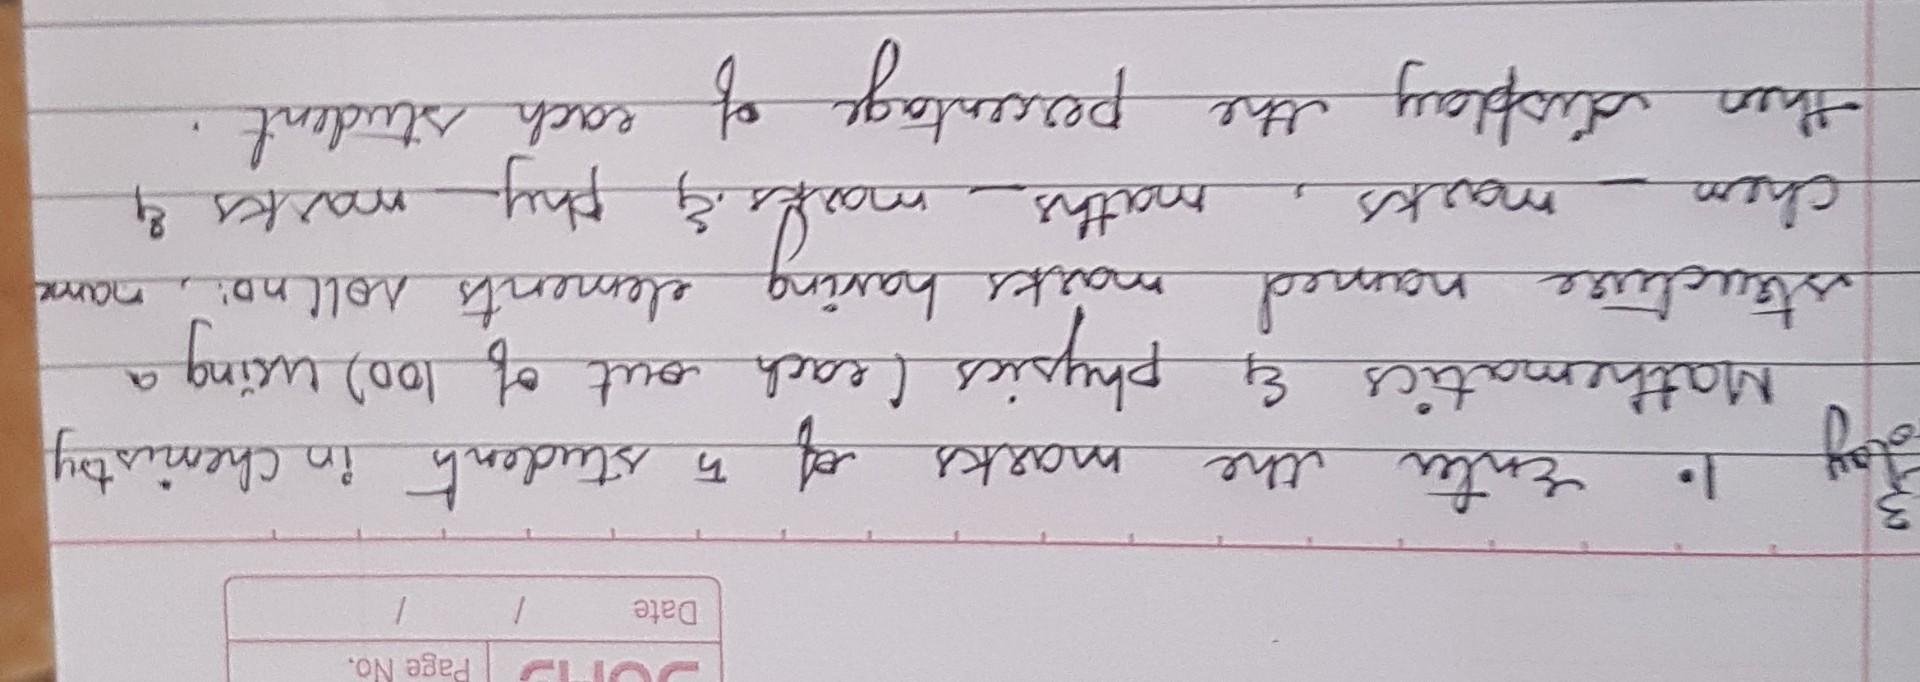 Page No.
Date / /
1. Enter the marks of 5 students in chemistry
Mathematics & physics (each out of 100) using a
structure named marks having elements roll no., name
chem_marks, maths_marks & phy_marks &
then display the percentage of each student.